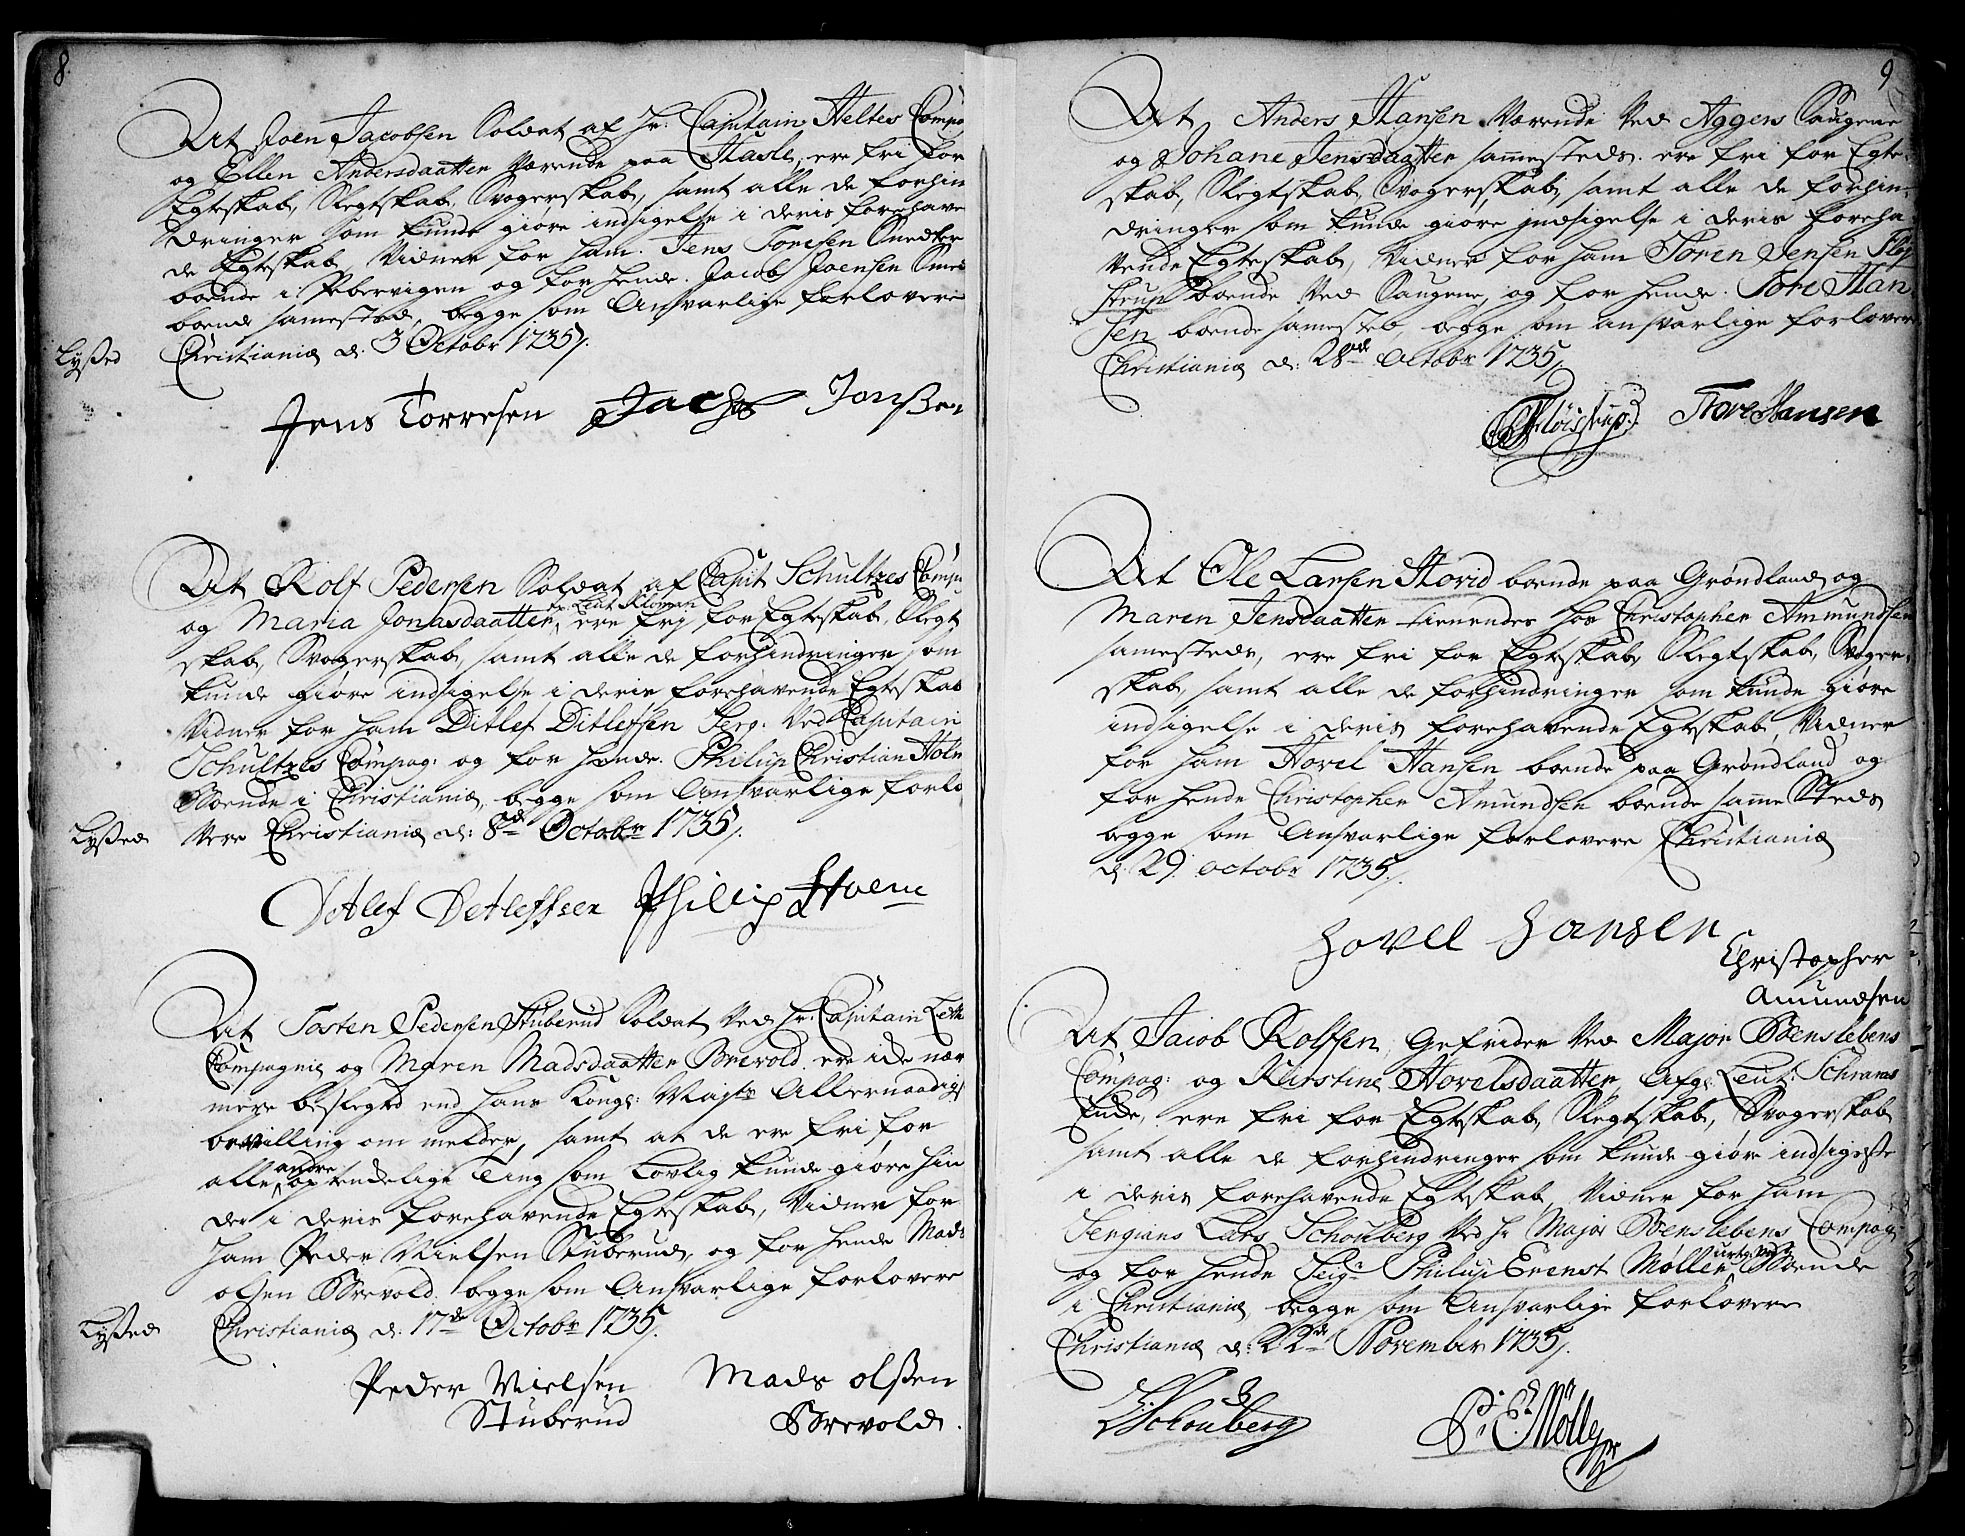 8.
At Joen Jacobsen Soldat af Hr. Capitain Heltes Comp
og Ellen Andersdaatter værende paa Hasle, ere fri for
Egteskab, Slegtskab, Svogerskab, samt alle de forhin
dringer som kunde giøre indsigelse i deris forehave
de Egteskab, Vidner for ham. Jens Toresen Snedker
boende i Pebervigen og for hende. Jacob Joensen Smed
boende samested, begge som Ansvarlige forlovere
Lyßed
Christiania d: 3 Octobr 1735/.
Jens Torresen Jachob Jonßen
At Rolf Pedersen Soldat af Capit Schultzes Comp
og Maria Jonasdaatter, ere fry for Egteskab, Slegt
skab, Svogerskab, samt alle de forhindringer som
kunde giøre indsigelse i deris forehavende Egteskab
Vidner for ham Ditlef Ditlefsen Serg: Ved Capitain
Schultzes Compag: og for hende. Philup Christian Holm
Boende i Christiania, begge som Ansvarlige forlo
Lyßed
vere Christiania d: 8de Octobr 1735/.
Detlef Detleffsen Phillip Holm
At Tosten Pedersen Stuberud Soldat Ved Hr. Capitain
Compagnie og Maren Madsdaatter Brevold. ere ide nær
mere beslegted end hans Kongl: Mayts Allernaadigs
bevilling om melder, samt at de ere fri for
andre
alle optendelige Ting som Lovlig kunde giøre hin
der i deris forehavende Egteskab, Vidner for
ham Peder Nielsen Stuberud, og for hende Mads
olsen Brevold. begge som Ansvarlige forlovere
Lyßed
Christiania d: 17de Octobr 1735/.
Peder Nielsen Mads olßen
Stuberud Brevold.
9
At Anders Hansen værende ved Aggers Saugene
og Johane Jensdaatter sammesteds. ere fri for Egte
skab, Slegtskab, Svogerskab, samt alle de forhin
dringer som kunde giøre indsigelse i deris foreha
vende Egteskab, Vidner for ham Søren Jensen Fløj
strup boende ved Saugene, og for hende. Tore Han
sen boende samested, begge som ansvarlige forlovere
Christiania d: 28de Octobr 1735/.
Fløistrup. Tore Hansen
At Ole Larsen Hovid boende paa Grøndland og
Maren Jensdaatter tienendes hos Christopher Ammundsen
samesteds, ere fri for Egteskab, Slegtskab, Svoger
skab, samt alle de forhindringer som kunde giøre
indsigelse i deris forehavende Egteskab, Vidner
for ham Hovel Hansen boende paa Grøndland og
for hende Christopher Amundsen boende samme Steds
begge som Ansvarlige forlovere Christiania
d: 29. octobr 1735/.
Hovel Hansen Christopher
Amundsen
At Jacob Rolfsen, Gefrider Ved Major Bensslebens
Compag: og Kirstine Hovelsdaatter, Afg: Leut: Schrams
Enke, ere fri for Egteskab, Slegtskab, Svogerskab
samt alle de forhindringer som kunde giøre indsigelse
i deris forehavende Egteskab, Vidner for ham
Sergians Lars Schouberg Ved Hr Major Bensslebens Compag:
og for hende Seigr Philup Ernst Møller Boende
i Christiania, begge som Ansvarlige forlovere
Christiania d: 22de November 1735/.
L Schouberg P: E: Møller